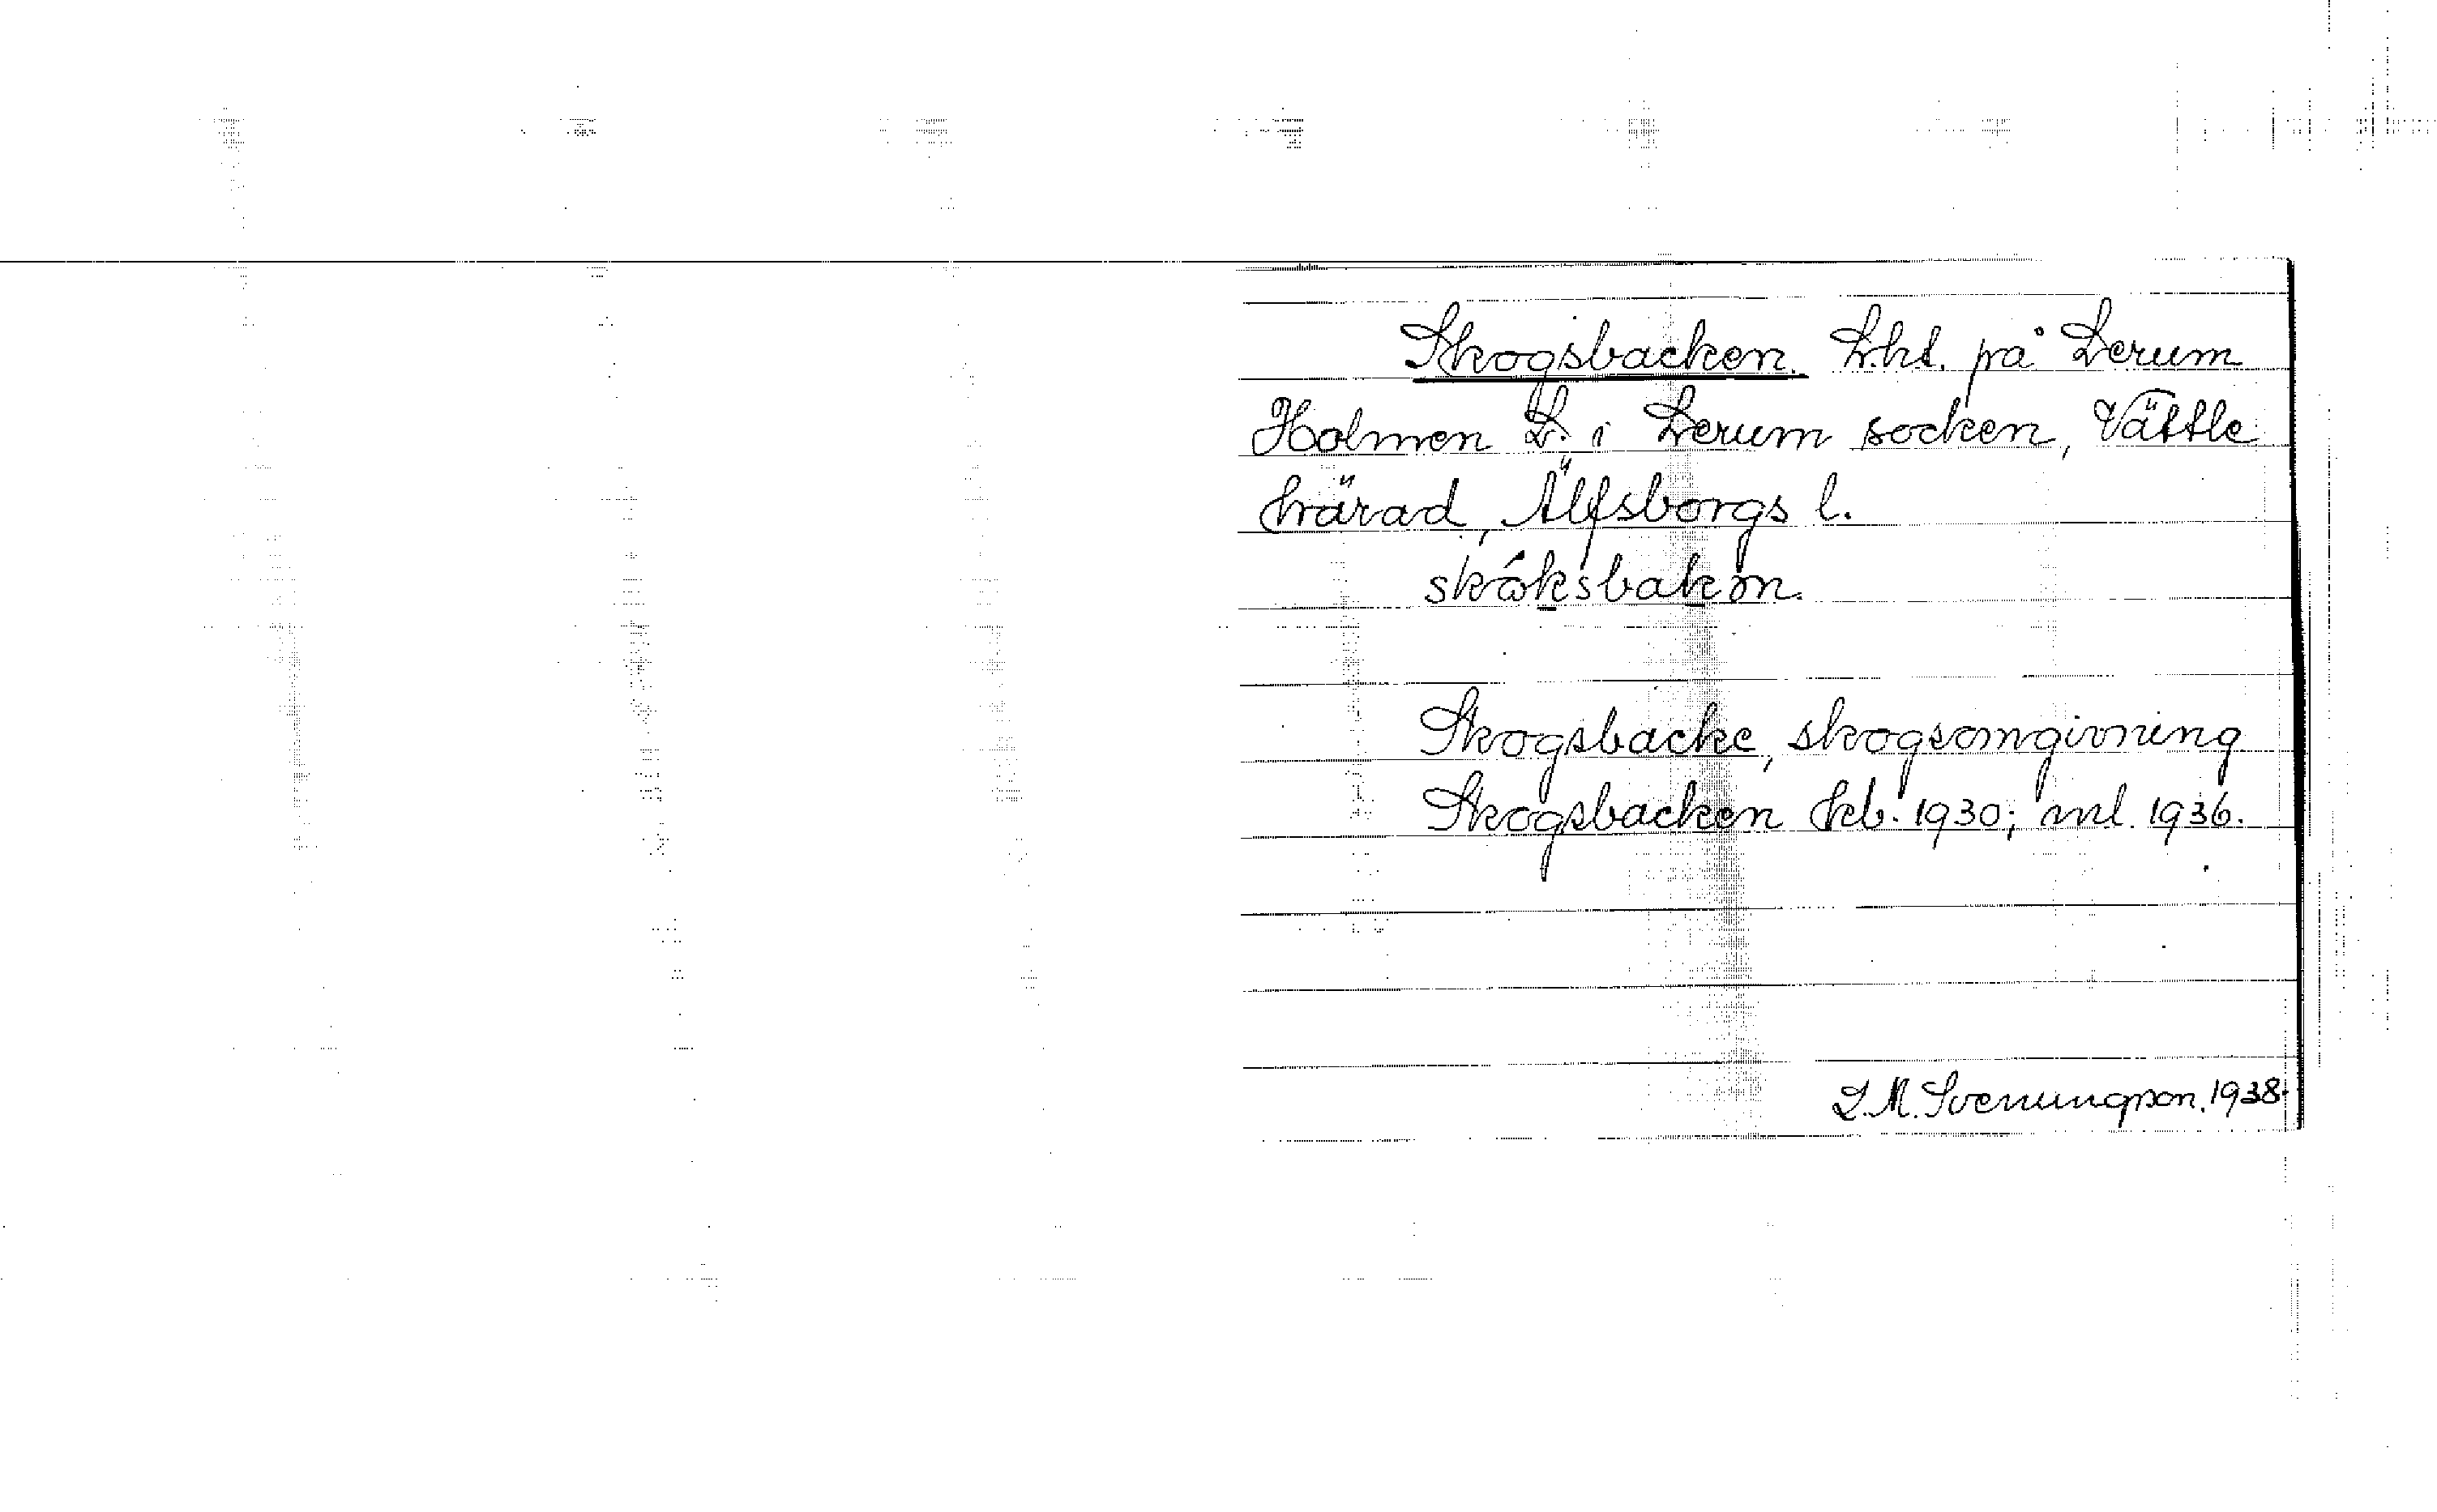 Skogsbacken. Lht. på Lerum
Holmen L. i Lerum socken, Vättle
härad, Älfsborgs l.
skóksbakən.
Skogsbacke, skogsomgivning
Skogsbacken kb. 1930; ml. 1936.
L. M. Svenungson. 1938.